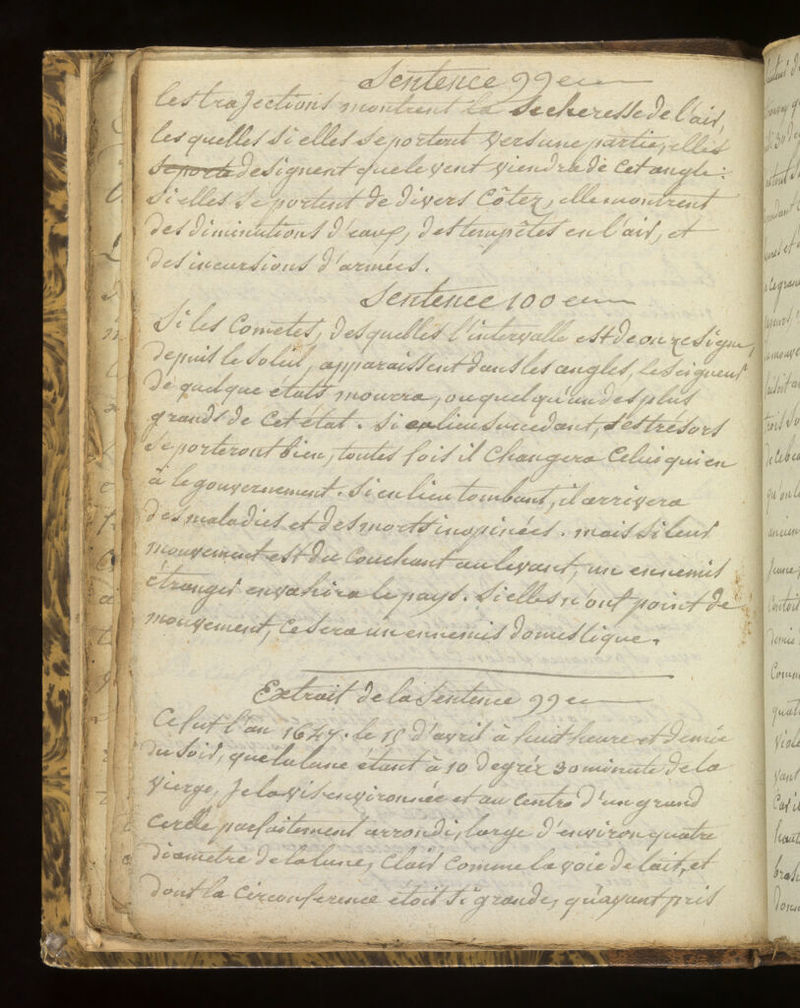 Sentence 99e
Les trajections montrent la Secheresse de l'air,
les quelles si elles se portent vers une partie, elles
Se porte designent que le vent viendra de Cet angle :
Si elles Se portent de divers Côtez, elle montrent
des diminutions d'eaux, des tempêtes en l'air, et
des incursions d'armées.
Sentence 100e
Si les Cometes, desquelles l'intervalle est de onze Signe,
depuis le Soleil, apparaissent dans les angles, le Seigneur
de quelque etats mourra, ou quelqu'un des plus
grands de Cet état. Si au lieu Succedant, Ses trésors
Se porteront bien, toutes fois il Changera Celui qui en
a le gouvernement. Si en lieu tombant, il arrivera
des maladies et des morts inopinées. mais Si leur
mouvement est du Couchant au levant, un ennemis
étranger envahira le pays. Si elles n'ont point de
mouvement, Ce Sera un ennemis domestique.
Extrait de la Sentence 99e
Ce fut l'an 1647. le 15 d'avril à huit heure et demie
du Soir, que la lune étant à 10 degréz 30 minute de la
Vierge, Je la vis environnée et au Centre d'un grand
Cercle parfaitement arrondi, large d'environ quatre
diametre de la lune, Clair Comme la voie de lait, et
dont la Circonference étoit Si grande, qu'ayant pris